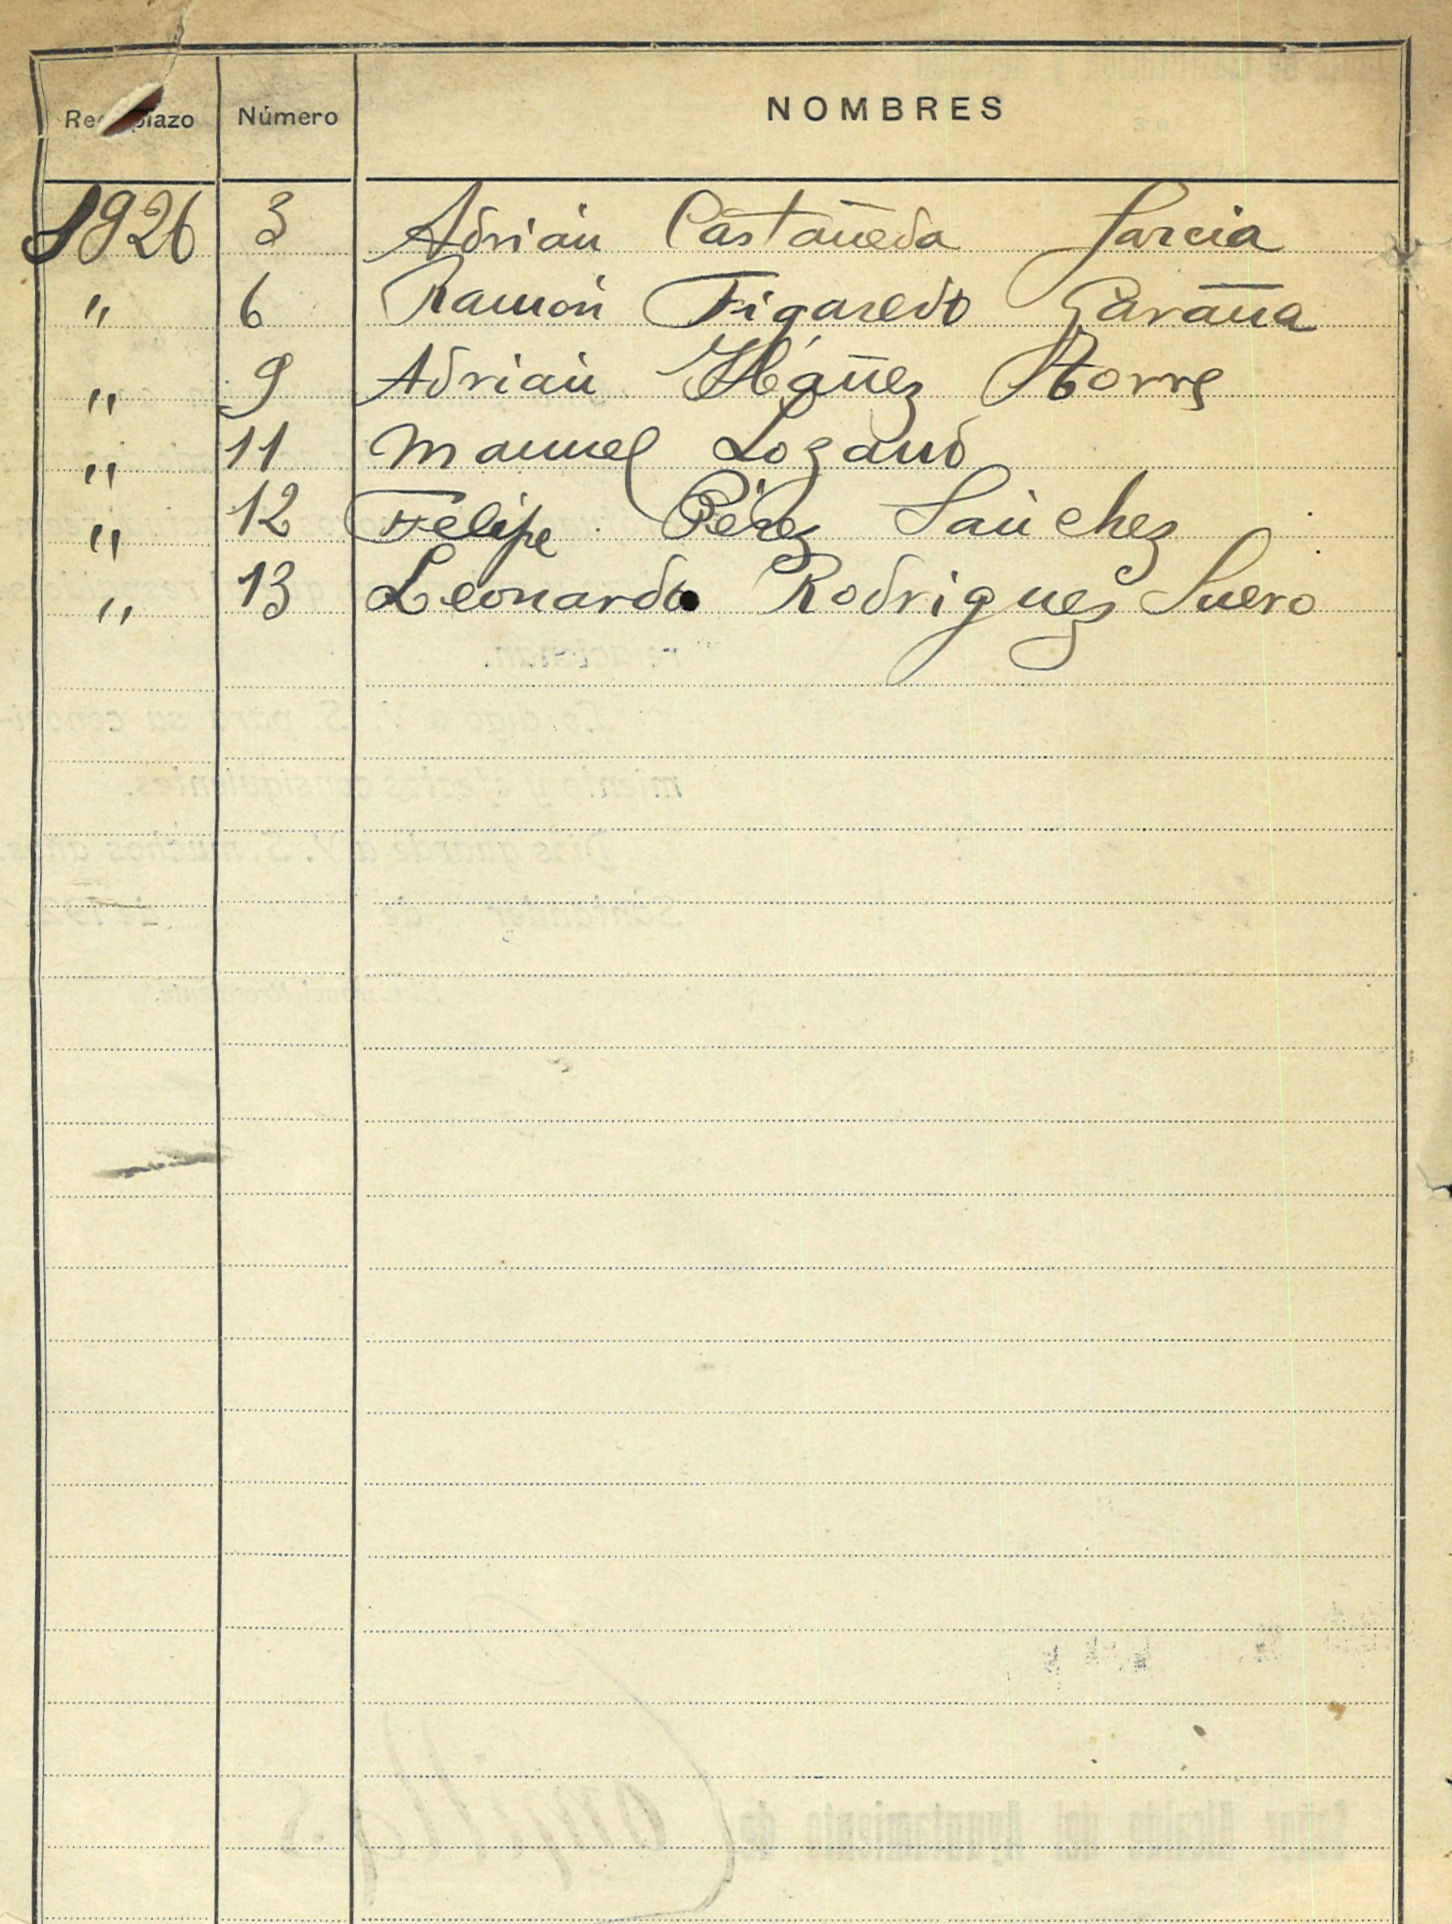 Reemplazo Número NOMBRES
1926 3 Adrián Castañeda Garcia
" 6 Ramón Figaredo Garaña
" 9 Adrián Ibáñez Torre
" 11 Manuel Lozano
" 12 Felipe Pérez Sánchez
" 13 Leonardo Rodriguez Suero